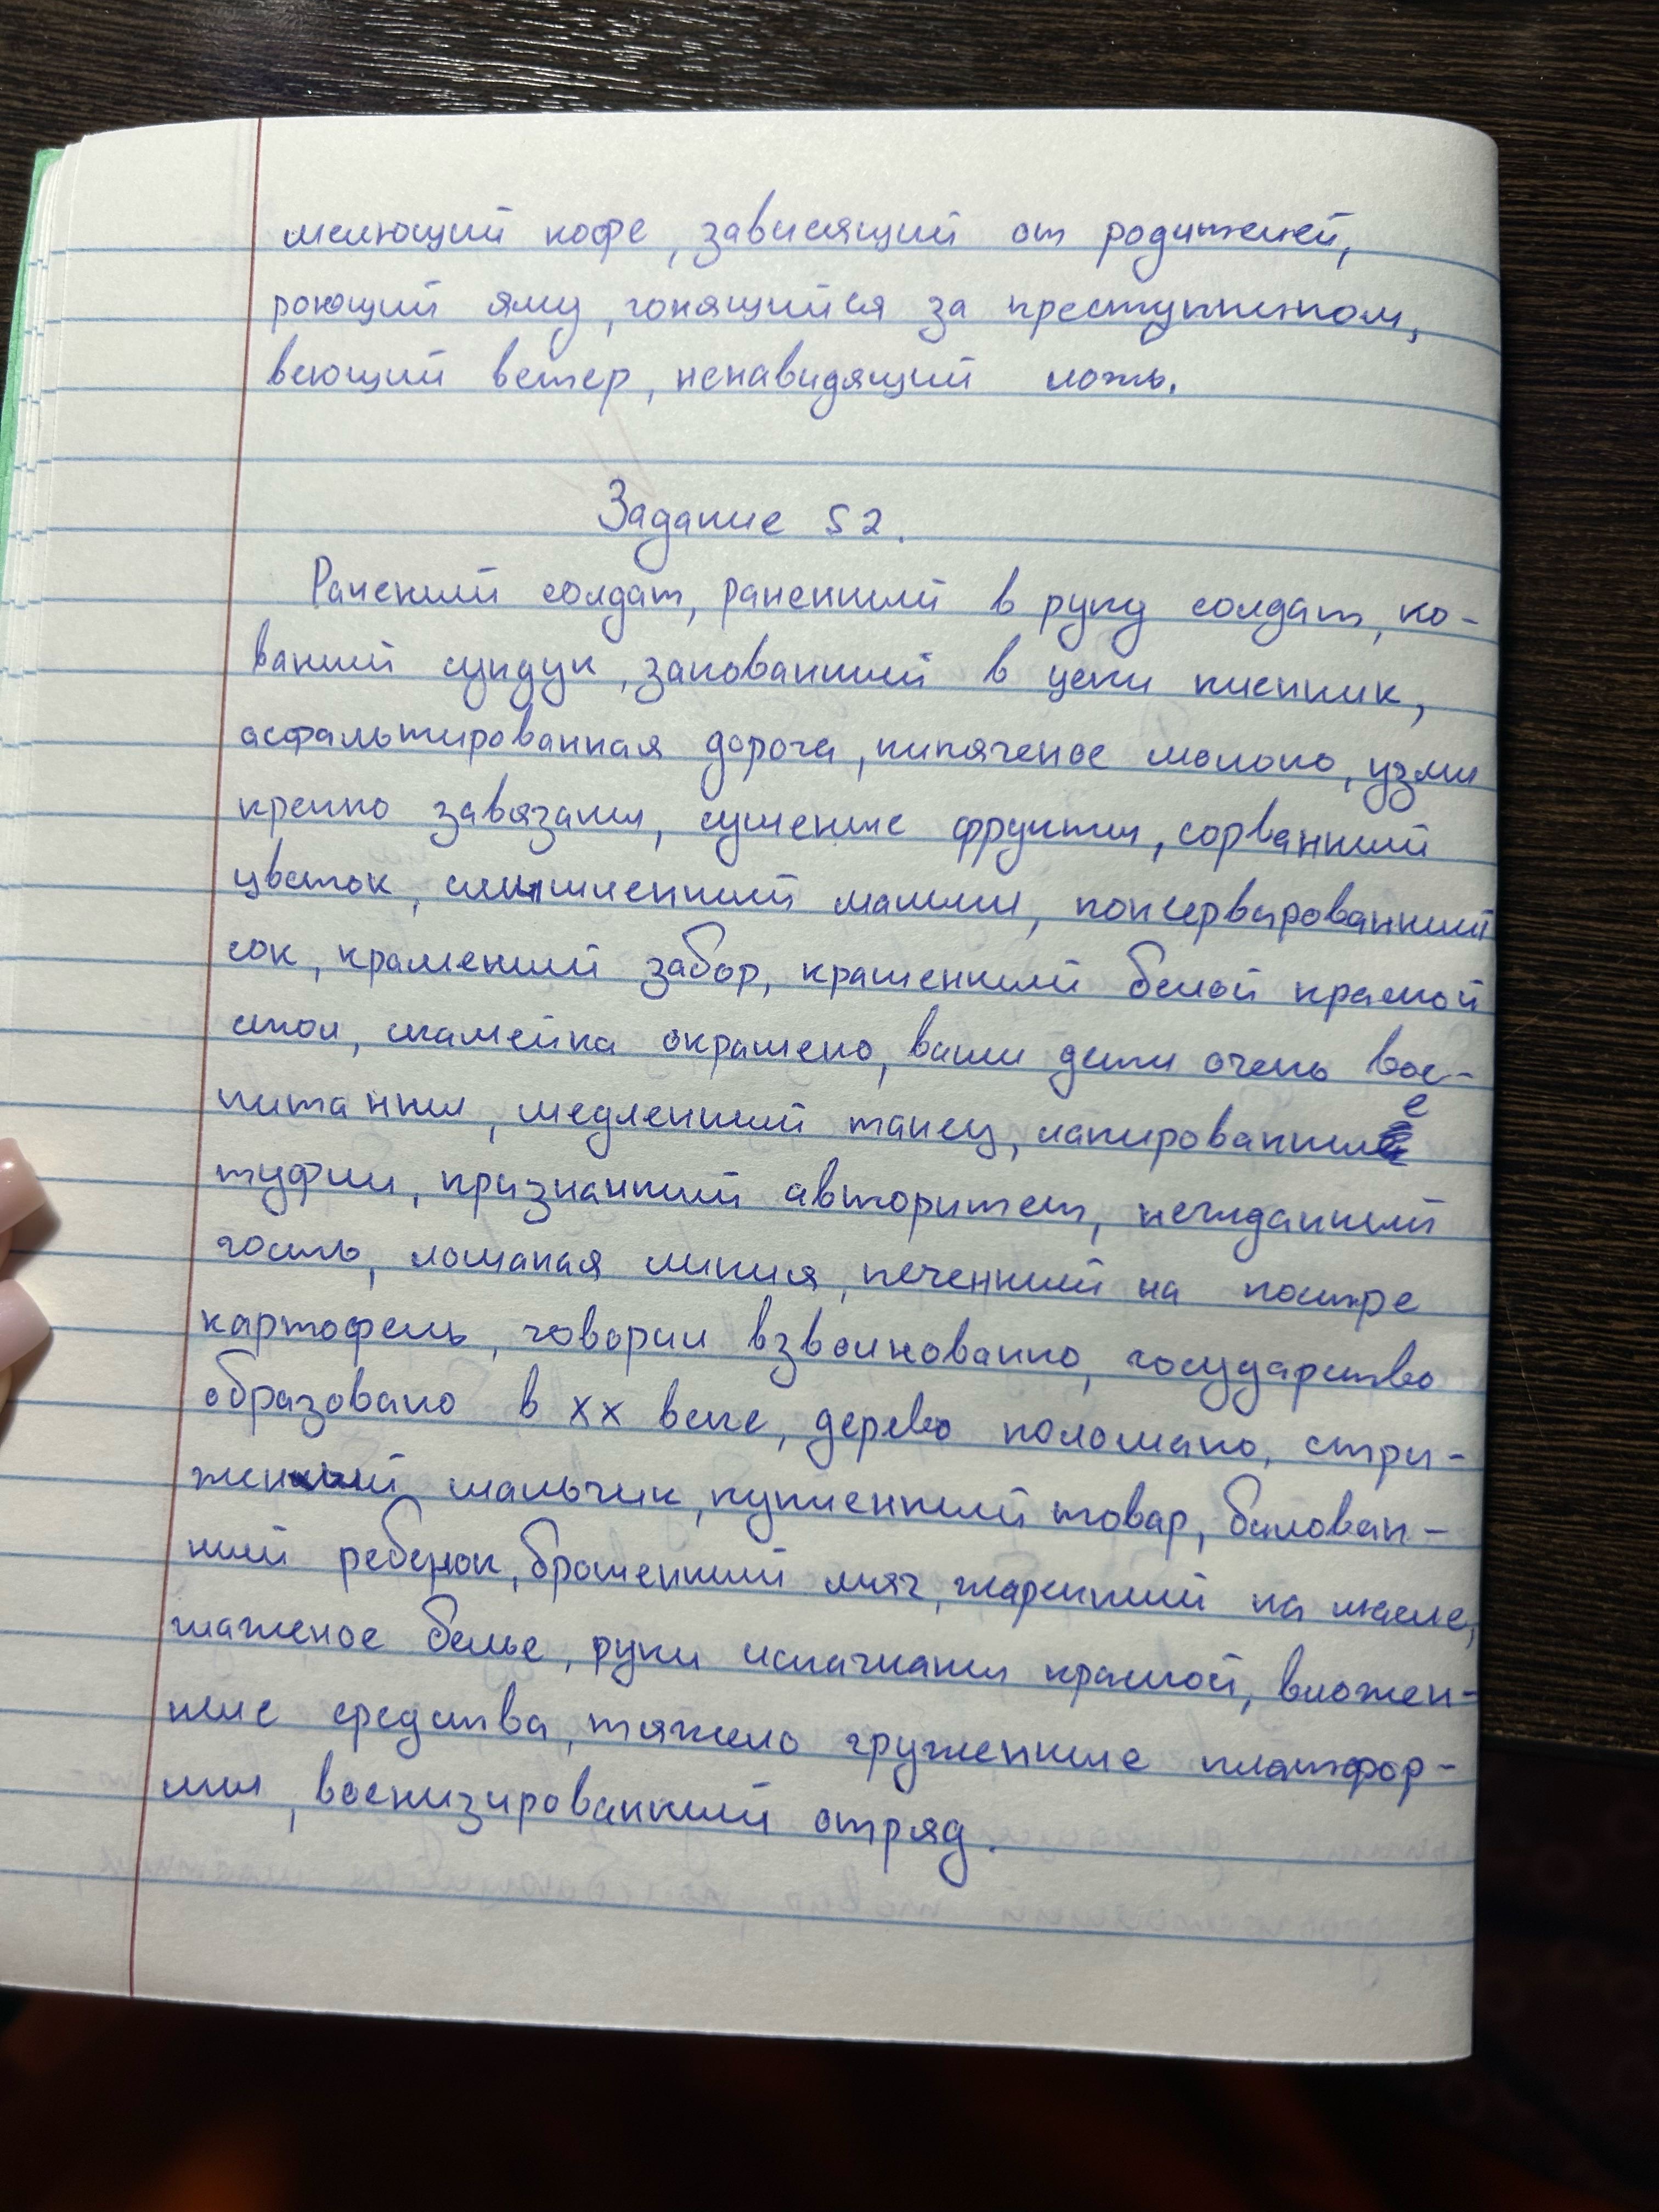 мелющий кофе, зависящий от родителей,
роющий яму, гонящийся за преступником,
веющий ветер, ненавидящий ложь.
Задание 52.
Раненый солдат, раненный в руку солдат, ко-
ваный сундук, закованный в цепи пленник,
асфальтированная дорога, кипяченое молоко, узлы
крепко завязаны, сушеные фрукты, сорванный
цветок, смышленный малыш, консервированный
сок, крашенный забор, крашенный белой краской
стол, скамейка окрашено, ваши дети очень вос-
питанны, медленный танец, лакированные
туфли, признанный авторитет, нежданный
гость, ломаная линия, печенный на костре
картофель, говорил взволнованно, государство
образовано в XX веке, дерево поломано, стри-
женый мальчик, купленный товар, балован-
ный ребенок, брошенный мяч, жаренный на масле,
глаженое белье, руки испачканы краской, вложен-
ные средства, тяжело груженные платфор-
мы, военизированный отряд.